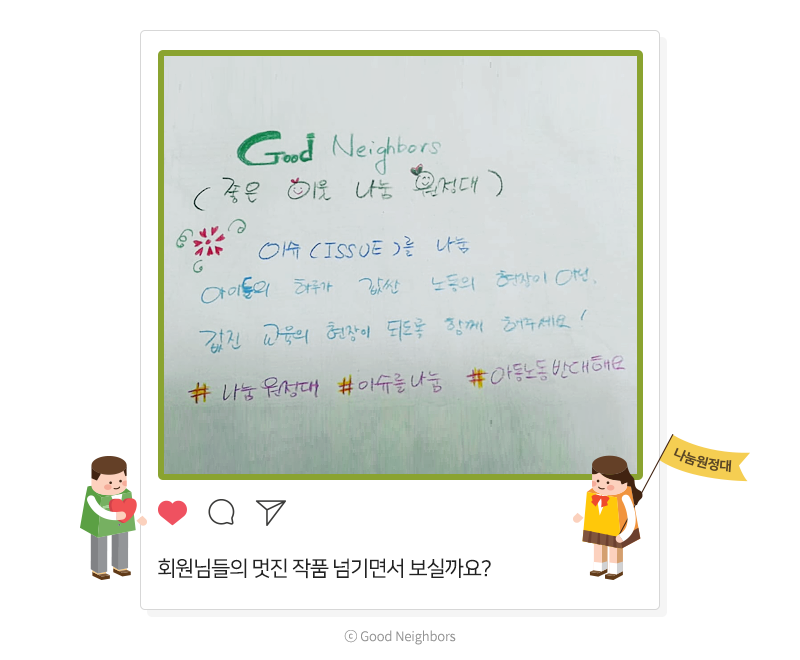 Good Neighbors
(좋은 이웃 나눔 원정대)
이슈(ISSUE)를 나눔
아이들의 하루가 값싼 노동의 현장이 아닌,
값진 교육의 현장이 되도록 함께 해주세요!
#나눔원정대 #이슈를나눔 #아동노동반대해요
나눔원정대
회원님들의 멋진 작품 넘기면서 보실까요?
ⓒ Good Neighbors